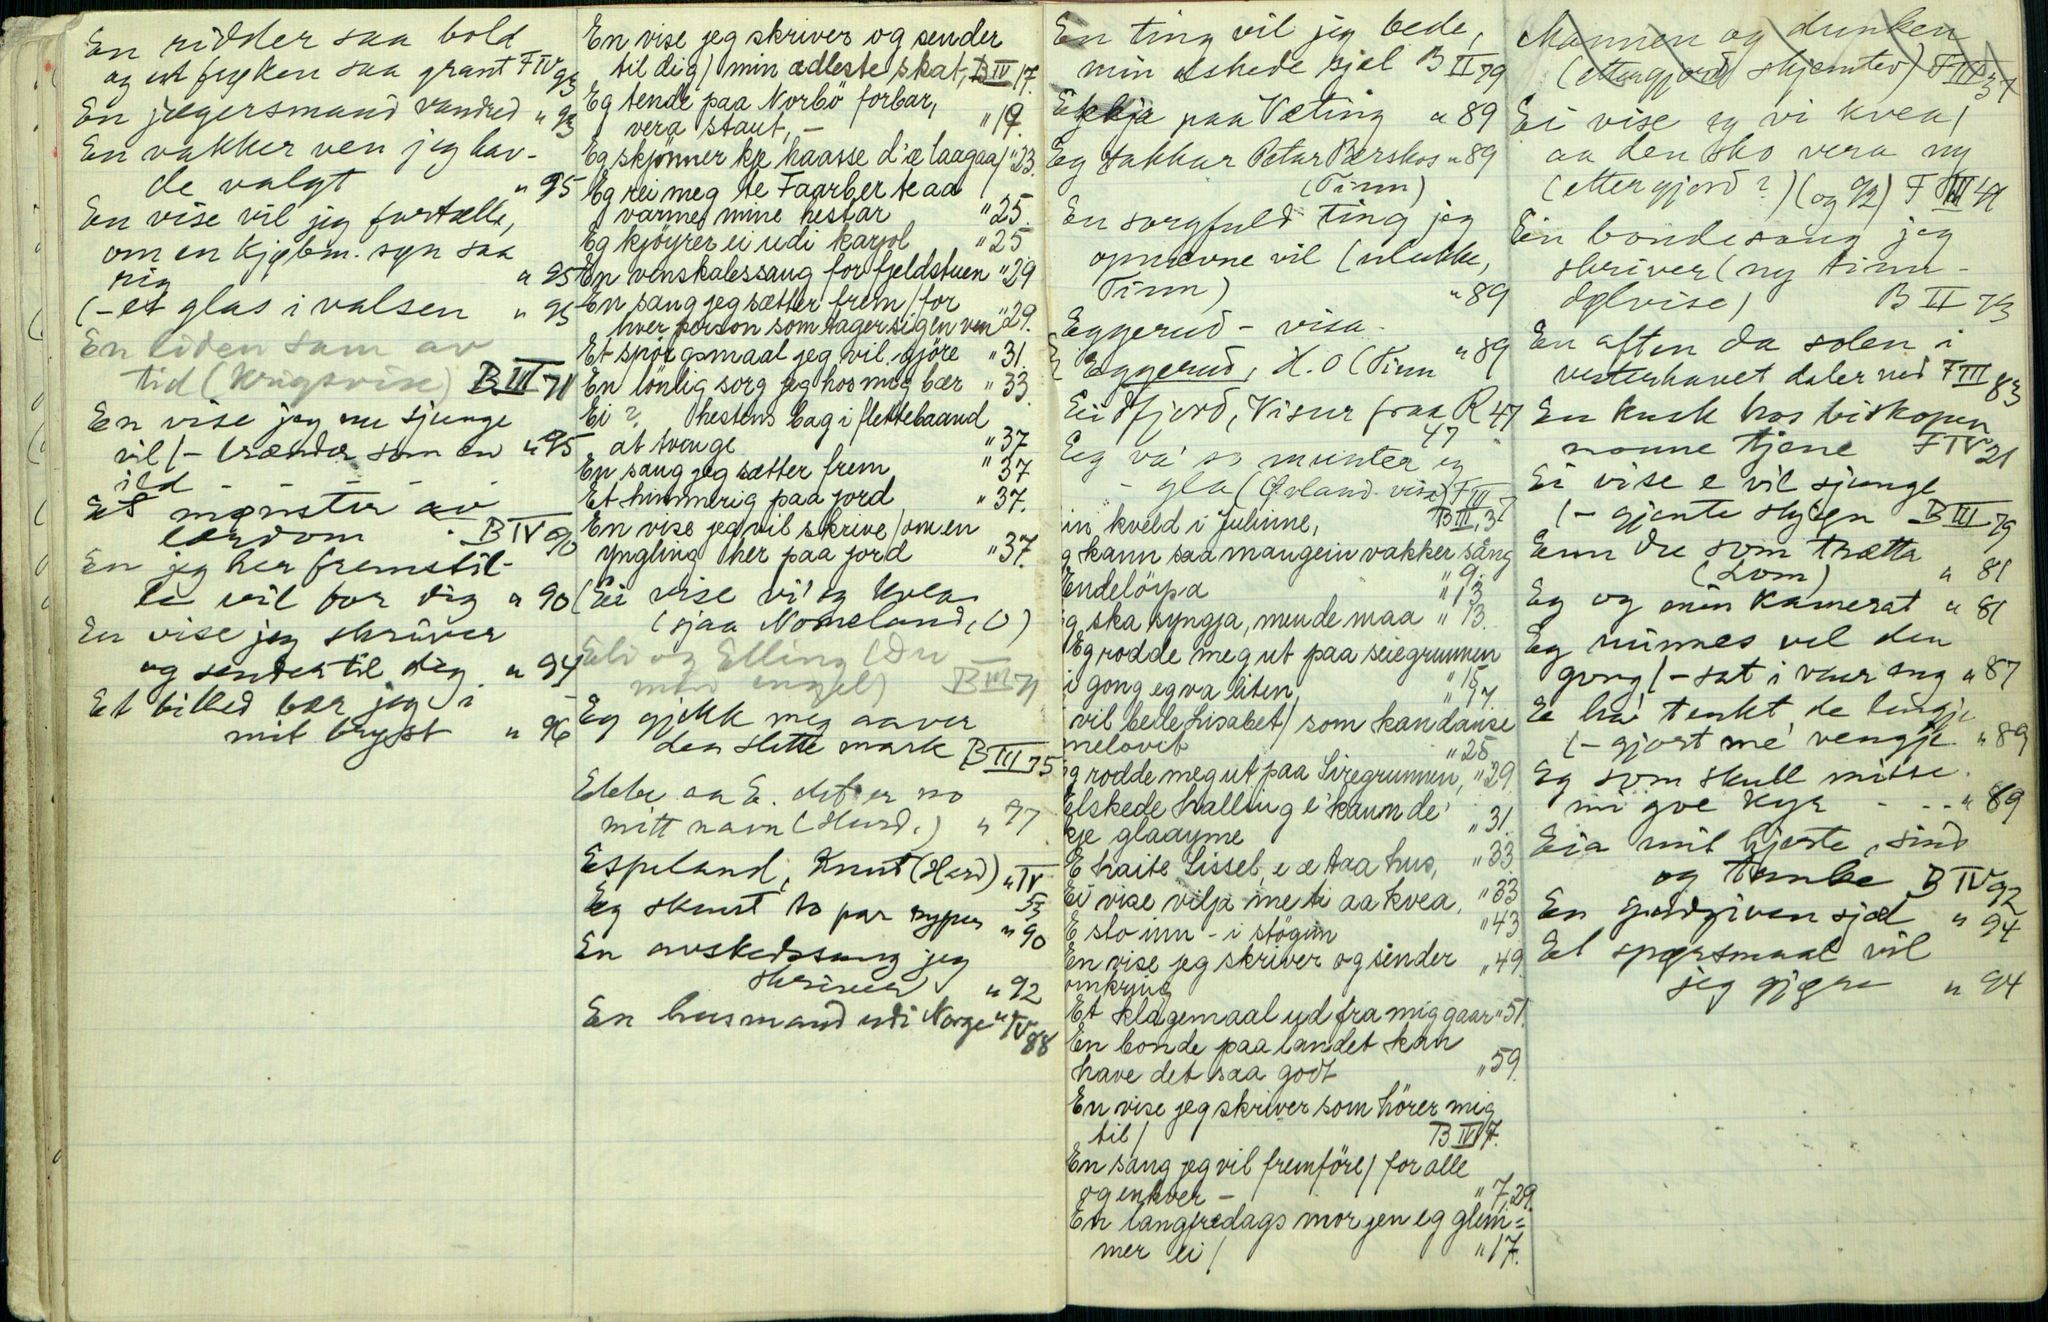 En ridder saa bold
og en frøken saa grant F IV 93
En jægersmand vandred " 93
En vakker ven jeg hav-
de valgt " 95
En vise vil jeg fortælle,
om en kjøbm. søn saa
rig " 95
(- et glas i valsen " 95
En liden sum av
tid (krigsvise) B III 71
En vise jeg nu sjunge
vil (- brænder som en " 95
ild -
Et mønster av
lærdom B IV 90
En jeg her fremstil-
le vil for dig " 90
En vise jeg skriver
og sender til dig " 94
Et billed bær jeg i
mit bryst " 96
En vise jeg skriver og sender
til dig / min ædleste skat, B IV 17.
Eg tende paa Norbö forbar,
vera staut, - " 19.
Eg skjönner kje kaasse d'æ laagaa / " 23.
Eg rei meg te Faarber te aa
varme mine hestar " 25.
Eg kjöyrer ei udi karjol " 25
En venskabssaug for fjeldstuen " 29
En sang jeg sætter frem / for
hver person som tager sig en ven " 29.
Et spörgsmaal jeg vil gjöre " 31.
En lönlig sorg jeg hos meg bær " 33
Ei ? hestens bag i flettebaand
at svinge " 37
En sang jeg sætter frem " 37
Et himmerig paa jord " 37.
En vise jeg vil skrive / om en
yngling her paa jord " 37.
(Ei vise vi' eg kvea
(sjaa Nomeland, O)
Eli og Elling (Du
min engel) B III 71
Eg gjekk meg aaver
den slette mark B III 75
Ebbe aa E. det er no
mitt navn (Hard.) " 77
Espeland, Knut (Hard) " IV 53
Eg skaut to par ryper " 90
En avskedssang jeg
skriver " 92
En husmand udi Norge " IV 88
En ting vil jeg bede,
min elskede sjel B II 79
Ekkja paa Væting " 89
Eg takkar Petar Børskos " 89
(Tinn)
En sorgfuld ting jeg
opnævne vil (ulukke,
Tinn) " 89
Eggerud - visa " 89
Eggerud, H. O (Tinn
Eidfjord, Visur fraa R 47
47
Eg va' so munter og
- gla (Øvland vise) F III 7
in kveld i Julinne, B III, 3
g kann saa mangein vakker sång
Endelöypa " 9.
" 13
g ska syngja, men de maa " 13.
Eg rodde meg ut paa seiegrunnen
" 15
i gong eg va liten, " 17.
vil bede Lisabet / som kan danse
melovit " 25
g rodde meg ut paa Siregrunnen, " 29
Elskede halling e' kann de'
kje glaayme " 31.
E haite Lissel, e æ taa hus, " 33
Ei vise vilja me ti aa kvea, " 33
E sto inn - i stögun " 43
En vise jeg skriver og sender " 49
omkring
Et klagemaal ud fra mig gaar " 51.
En bonde paa landet kan
have det saa godt " 59.
En vise jeg skriver som hörer mig
til / B IV 7.
En sang jeg vil fremföre / for alle
og enhver - " 7, 29.
En langfredags morgen eg glem=
mer ei / " 17.
Mannen og dunken
(ettergjord skjemtev) F III 37
Ei vise eg vi kvea /
aa den sko vera ny
(ettergjord?) (og 92) F III 41
Ein bondesong jeg
skriver (ny tinn-
dølvise) B II 73
En aften da solen i
vesterhavet daler ned F III 83
En kusk hos biskopen
monne tjene F IV 21
Ei vise e vil sjunge
(- gjente stygn B III 79
Enn du som trætta
(Lom) " 81
Eg og min kamerat " 81
Eg minnes vel den
gong (- sat i vaar eng " 87
E ha' tenkt de lengje
(- gjort me' vengje " 89
Eg som skull misse
mi goe kyr - - - " 89
Eia mit hjerte, sind
og tanke B IV 92
En gudgiven sjæl " 94
Et spørsmaal vil
jeg gjøre " 94